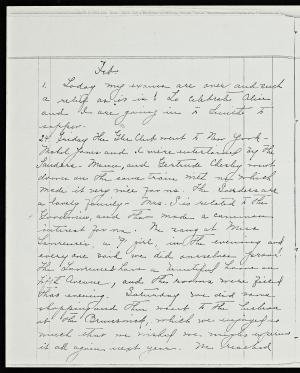 Feb.
1. Today my exams are over and such
a relief as is in! To celebrate Alice
and I are going in to Smiths to
supper.
24 Friday the Glee Club went to New York -
Mabel Jones and I were entertained by the
Sanders. Mama, and Gertrude Chesby went
down on the same train with me which
made it very nice for me. The Sanders are
a lovely family - Mrs. S is related to the
and that made a common
interest for me. We sang at Miss
Lawrences, a '9 girl, in the evening and
every one said we did ourselves proud!
The Lawrences have a beautiful home on
Fifth Avenue, and the rooms were filled
that evening. Saturday we did some
shopping and then went to the luncheon
at the Brunswick, which we enjoyed so
much that we wished we might repeat
it all again next year. We reached